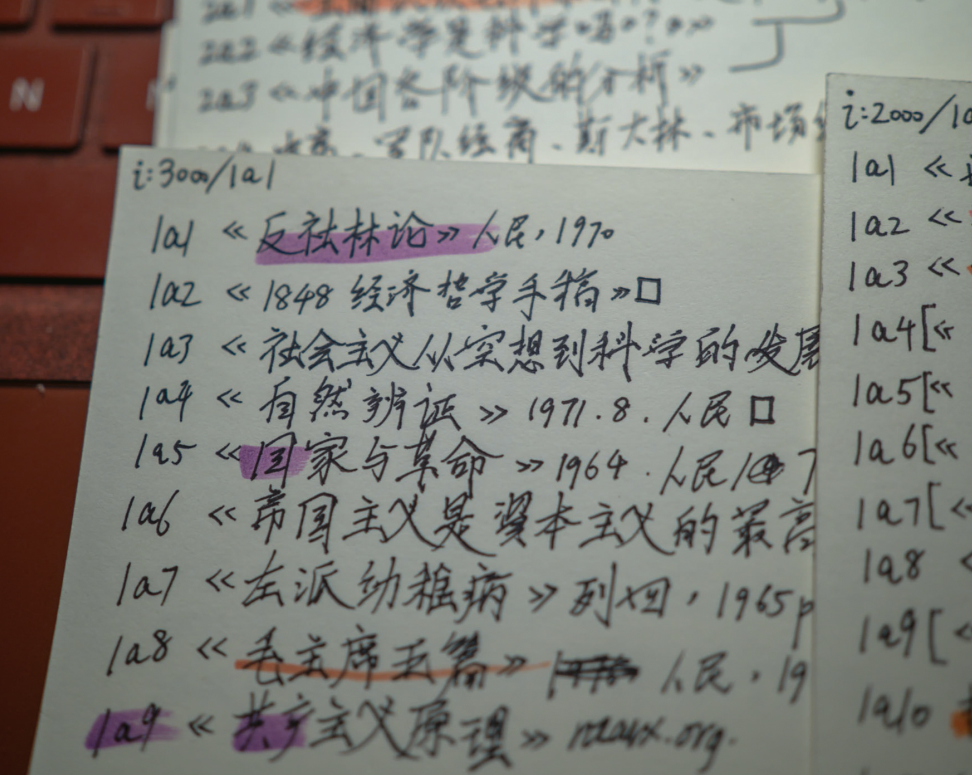 N
2a2《经济学是科学吗?》
2a3《中国各阶级的分析》
军队经商、斯大林、市场
i:3000/1a1
1a1《反社林论》人民,1970
1a2《1848经济哲学手稿》□
1a3《社会主义从空想到科学的发展
1a4《自然辨证》1971.8.人民□
1a5《国家与革命》1964.人民 7
1a6《帝国主义是资本主义的最高
1a7《左派幼稚病》列 1965p
1a8《毛主席五篇》人民,19
1a9《共产主义原理》marx.org.
i:2000/1a
1a1《
1a2《
1a3《
1a4[《
1a5[《
1a6[《
1a7[《
1a8
1a9[
1a10